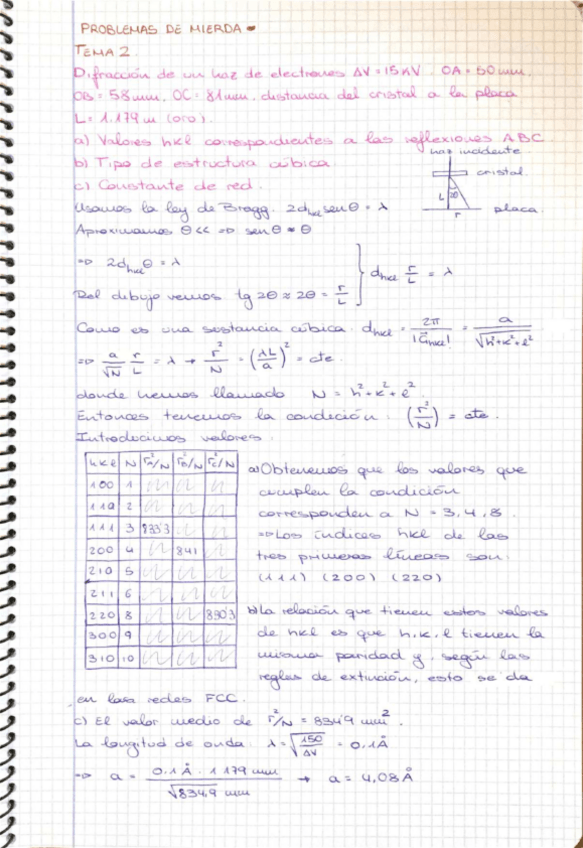 PROBLEMAS DE MIERDA
TEMA 2
Difracción de un haz de electrones ΔV = 15 kV. OA = 50 mm,
OB = 58 mm, OC = 81 mm, distancia del cristal a la placa
L = 1.179 m (oro).
a) Valores hkl correspondientes a las reflexiones ABC
b) Tipo de estructura cúbica.
c) Constante de red.
haz incidente
cristal.
L 2θ
r
placa.
Usamos la ley de Bragg. 2d_hkl sen θ = λ
Aproximamos θ << => sen θ ≈ θ
=> 2d_hkl θ = λ
Del dibujo vemos tg 2θ ≈ 2θ = r/L
d_hkl r/L = λ
Como es una sustancia cúbica: d_hkl = 2π/|G_hkl| = a/√(h²+k²+l²)
=> a/√N r/L = λ → r²/N = (λL/a)² = cte.
donde hemos llamado N = h²+k²+l².
Entonces tenemos la condición: (r²/N) = cte.
Introducimos valores:
hkl N r_A²/N r_B²/N r_C²/N
100 1
110 2
111 3 833'3
200 4 841
210 5
211 6
220 8 830'3
300 9
310 10
a) Obtenemos que los valores que
cumplen la condición
corresponden a N = 3, 4, 8.
=> Los índices hkl de las
tres primeras líneas son:
(111) (200) (220)
b) La relación que tienen estos valores
de hkl es que h, k, l tienen la
misma paridad y, según las
reglas de extinción, esto se da
en las redes FCC.
c) El valor medio de r²/N = 834'9 mm².
La longitud de onda: λ = √(150/ΔV) = 0.1 Å
=> a = 0.1 Å · 1179 mm / √834.9 mm → a = 4,08 Å